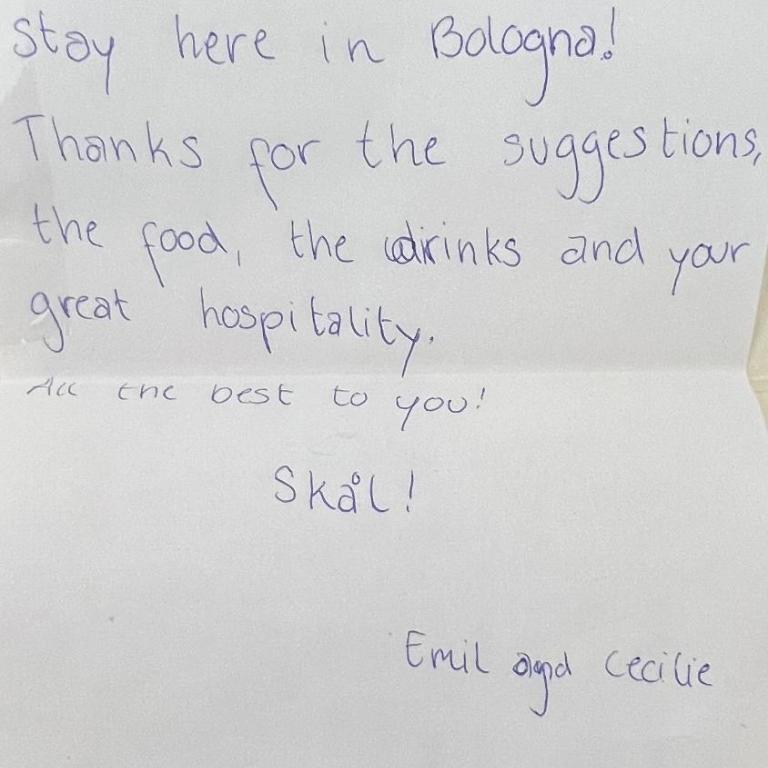 Stay here in Bologna!
Thanks for the suggestions,
the food, the drinks and your
great hospitality.
All the best to you!
Skål!
Emil and Cecilie